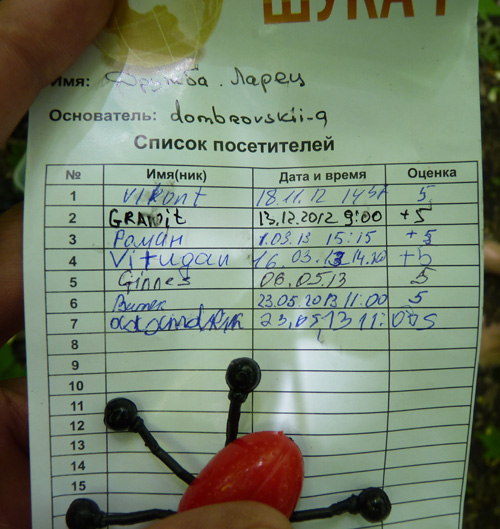 ШУКА
Имя: Дружба. Ларец
Основатель: dombrovskii-q
Список посетителей
№ Имя(ник) Дата и время Оценка
1 Vikont 18.11.12 5
2 GRANit 13.12.2012 9:00 +5
3 Роман 1.03.13 15:15 +5
4 Vitugan 16.03. 14.20 +5
5 Ginnes 06.05.13 5
6 23.05.2013 11:00 5
7 23.05 13 11:00 5
8
9
10
11
12
13
14
15